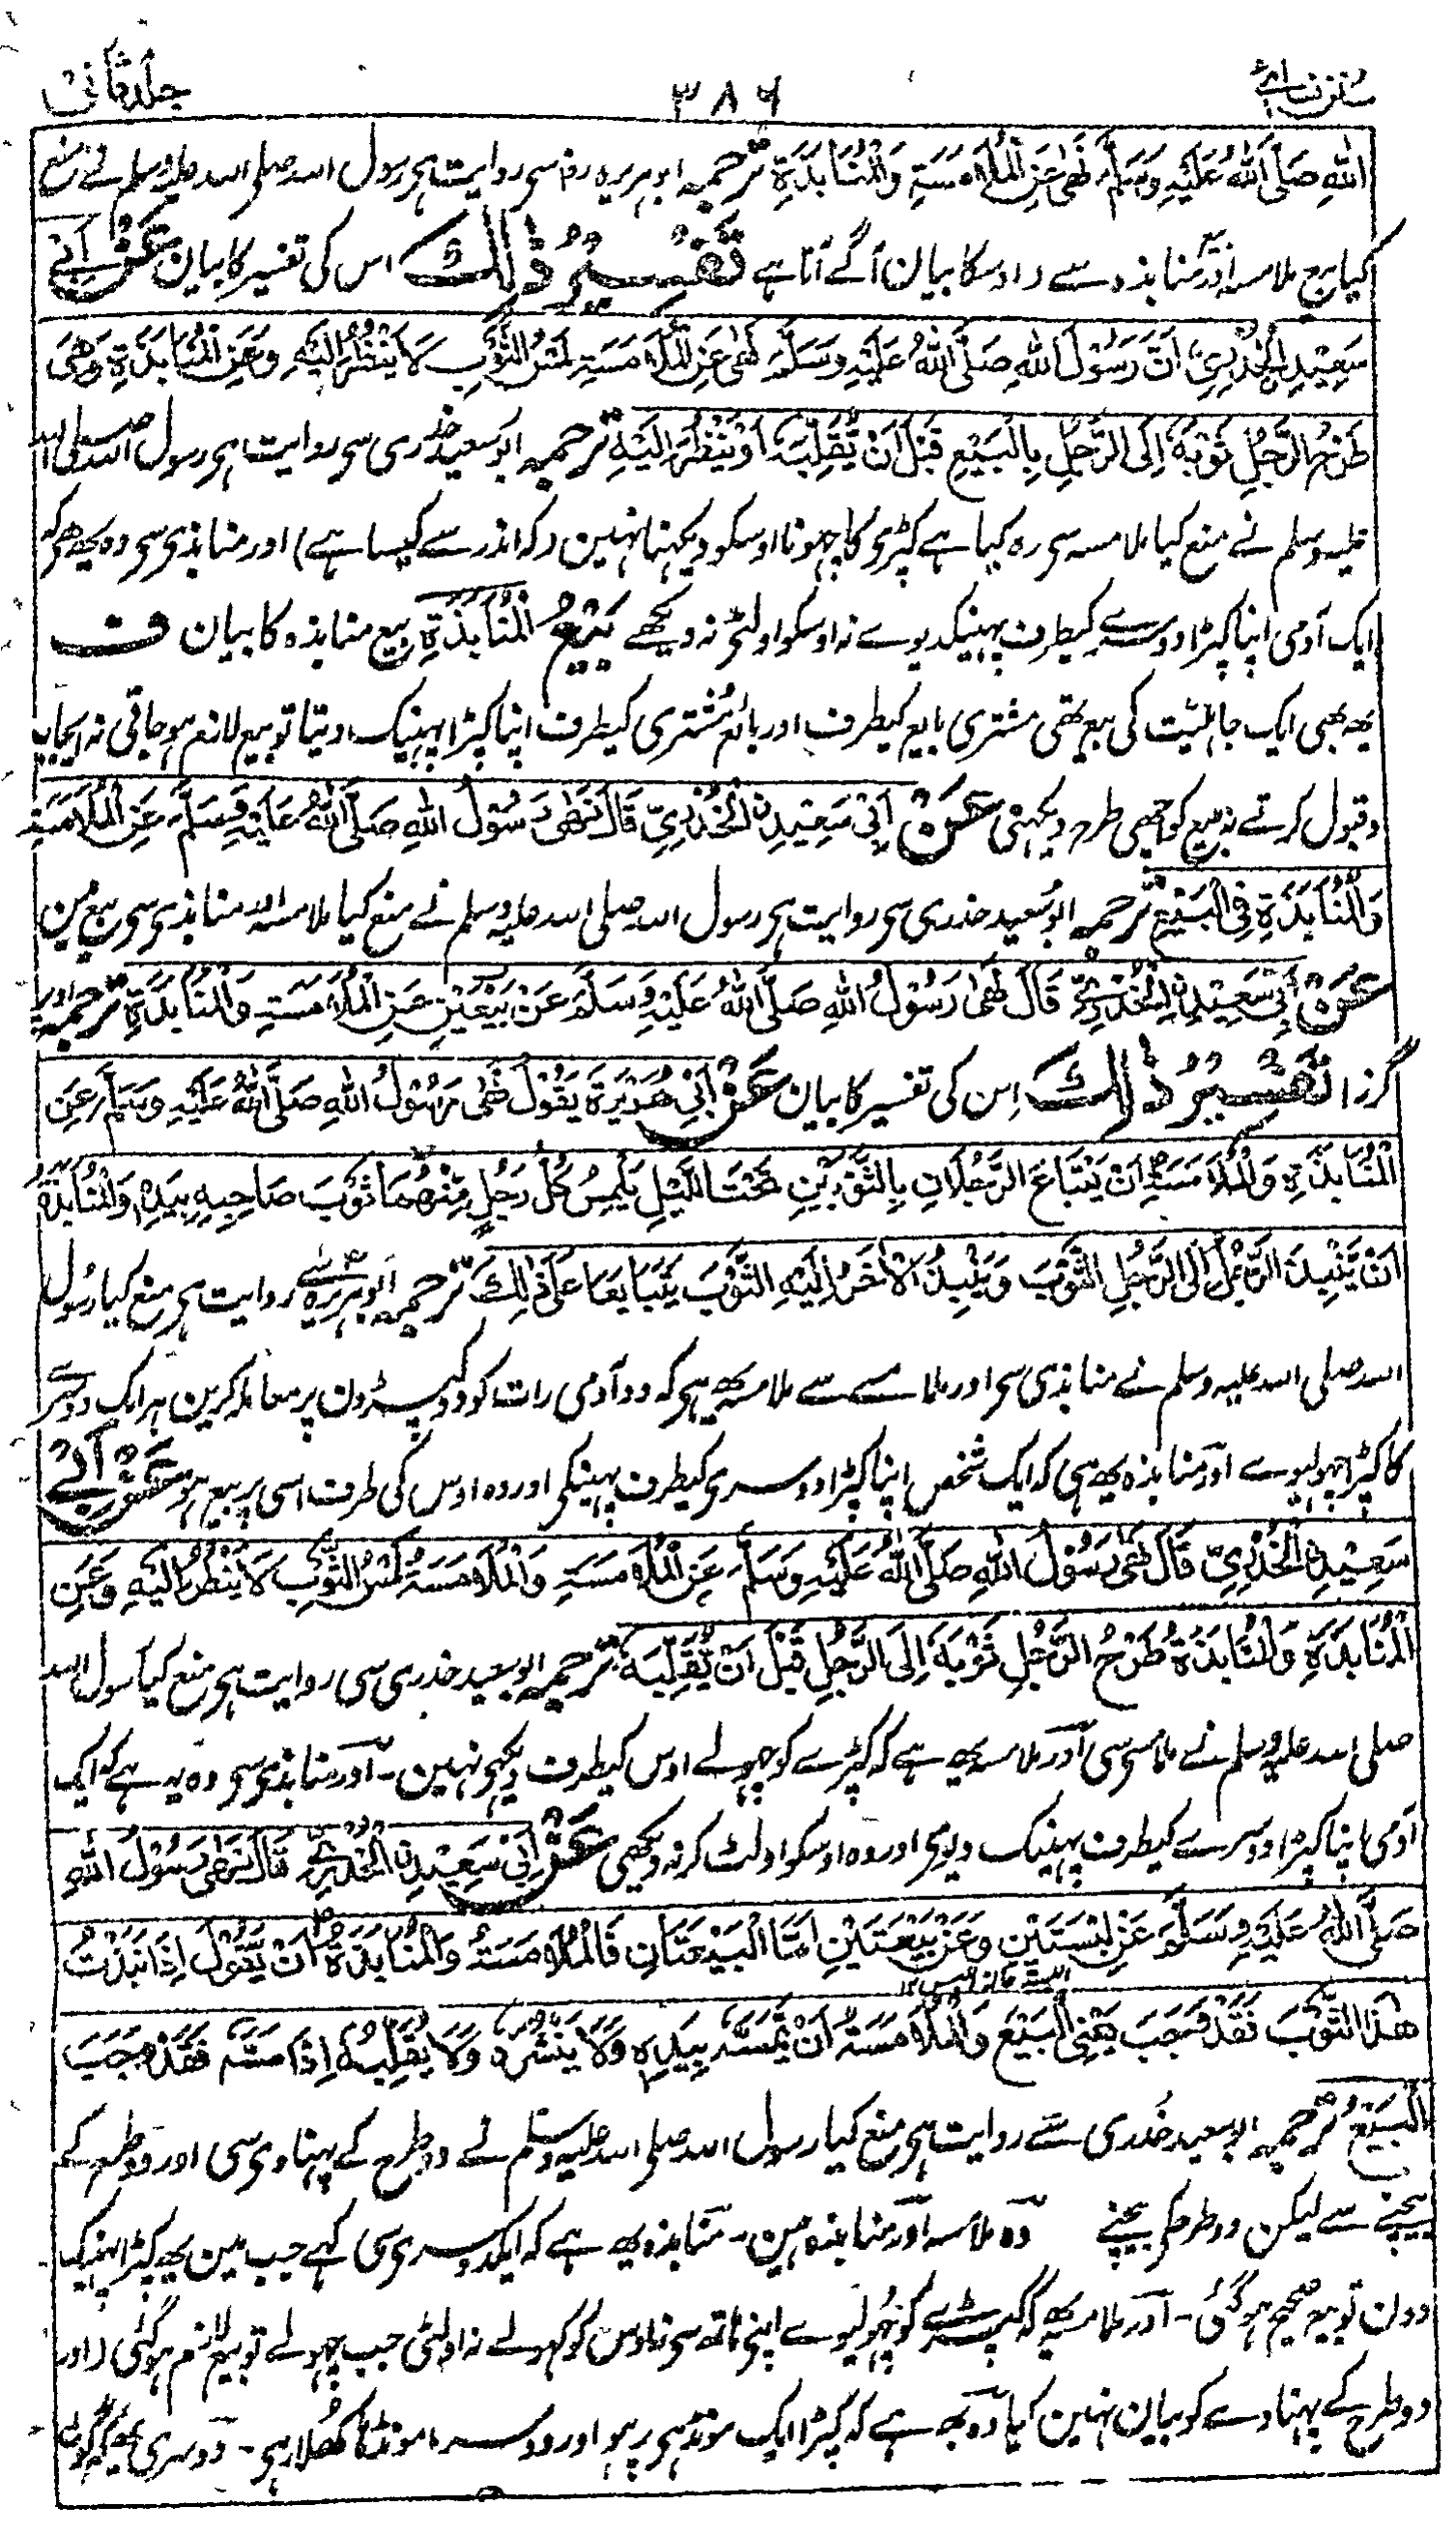 سنن نسائی ۳۸۶ جلد ثانی
اللهِ صَلَّى اللهُ عَلَيْهِ وَسَلَّمَ نَهٰى عَنِ الْمُلَامَسَةِ وَالْمُنَابَذَةِ ترجمہ ابوہریرہ رضہ سے روایت ہی رسول اللہ صلی اللہ علیہ وسلم نے منع
کیا بیع ملامسہ اور منابذہ سے (اوسکا بیان آگے آتا ہے تَفْسِيْرُ ذٰلِكَ اس کی تفسیر کا بیان عَنْ اَبِيْ
سَعِيْدِ الْخُدْرِيِّ اَنَّ رَسُوْلَ اللهِ صَلَّى اللهُ عَلَيْهِ وَسَلَّمَ نَهٰى عَنِ الْمُلَامَسَةِ لَمْسُ الثَّوْبِ لَا يَنْظُرُ اِلَيْهِ وَعَنِ الْمُنَابَذَةِ وَهِيَ
طَرْحُ الرَّجُلِ ثَوْبَهٗ اِلَى الرَّجُلِ بِالْبَيْعِ قَبْلَ اَنْ يُّقَلِّبَهٗ اَوْ يَنْظُرَ اِلَيْهِ ترجمہ ابو سعید خدری سی روایت ہی رسول اللہ صلی اللہ
علیہ وسلم نے منع کیا ملامسہ سی وہ کیا ہے کپڑی کا چہونا اوسکو دیکہنا نہین (کہ اندر سے کیسا ہے) اور منابذی سی وہ یہ ہی کہ
ایک آدمی اپنا کپڑا دوسرے کیطرف پہینکدیوے نہ اوسکو اولٹی نہ دیکھے بَيْعُ الْمُنَابَذَةِ بیع منابذہ کا بیان ف
یہ بھی ایک جاہلیت کی بیع تھی مشتری بایع کیطرف اور بائع مشتری کیطرف اپنا کپڑا پہینک دیتا تو بیع لازم ہو جاتی نہ ایجاب
و قبول کرتے نہ مبیع کو اچھی طرح دیکہتی عَنْ اَبِيْ سَعِيْدِنِ الْخُدْرِيِّ قَالَ نَهٰى رَسُوْلُ اللهِ صَلَّى اللهُ عَلَيْهِ وَسَلَّمَ عَنِ الْمُلَامَسَةِ
وَالْمُنَابَذَةِ فِي الْبَيْعِ ترجمہ ابو سعید خدری سی روایت ہی رسول اللہ صلی اللہ علیہ وسلم نے منع کیا ملامسہ اور منابذی سی بیع مین
عَنْ اَبِيْ سَعِيْدِنِ الْخُدْرِيِّ قَالَ نَهٰى رَسُوْلُ اللهِ صَلَّى اللهُ عَلَيْهِ وَسَلَّمَ عَنْ بَيْعَتَيْنِ عَنِ الْمُلَامَسَةِ وَالْمُنَابَذَةِ ترجمہ اوپر
گزرا تَفْسِيْرُ ذٰلِكَ اِس کی تفسیر کا بیان عَنْ اَبِيْ هُرَيْرَةَ يَقُوْلُ نَهٰى رَسُوْلُ اللهِ صَلَّى اللهُ عَلَيْهِ وَسَلَّمَ عَنِ
الْمُنَابَذَةِ وَالْمُلَامَسَةِ اَنْ يَّتَبَايَعَ الرَّجُلَانِ بِالثَّوْبَيْنِ تَحْتَ اللَّيْلِ يَلْمِسُ كُلُّ رَجُلٍ مِّنْهُمَا ثَوْبَ صَاحِبِهٖ بِيَدِهٖ وَالْمُنَابَذَةُ
اَنْ يَّنْبِذَ الرَّجُلُ اِلَى الرَّجُلِ الثَّوْبَ وَيَنْبِذُ الْاٰخَرُ اِلَيْهِ الثَّوْبَ يَتَبَايَعَا عَلٰى ذٰلِكَ ترجمہ ابوہریرہ سے روایت ہی منع کیا رسول
اللہ صلی اللہ علیہ وسلم نے منابذی سی اور ملامسے سے ملامسہ یہ ہی کہ دو آدمی رات کو دو کپڑون پر معاملہ کرین ہر ایک دوسرے
کا کپڑا چہولیوے اور منابذہ یہ ہی کہ ایک شخص اپنا کپڑا دوسری کیطرف پہینکی اور وہ اوس کی طرف اسی پر بیع ہو عَنْ اَبِيْ
سَعِيْدِنِ الْخُدْرِيِّ قَالَ نَهٰى رَسُوْلُ اللهِ صَلَّى اللهُ عَلَيْهِ وَسَلَّمَ عَنِ الْمُلَامَسَةِ وَالْمُلَامَسَةُ لَمْسُ الثَّوْبِ لَا يَنْظُرُ اِلَيْهِ وَعَنِ
الْمُنَابَذَةِ وَالْمُنَابَذَةُ طَرْحُ الرَّجُلِ ثَوْبَهٗ اِلَى الرَّجُلِ قَبْلَ اَنْ يُّقَلِّبَهٗ ترجمہ ابو سعید خدری سی روایت ہی منع کیا رسول اللہ
صلی اللہ علیہ وسلم نے ملامسی سی اور ملامسہ یہ ہے کہ کپڑے کو چہولے اوس کیطرف دیکہی نہین۔ اور منابذی سی وہ یہ ہے کہ ایک
آدمی اپنا کپڑا دوسرے کیطرف پہینک دیوی اور وہ اوسکو اولٹ کر نہ دیکھی عَنْ اَبِيْ سَعِيْدِنِ الْخُدْرِيِّ قَالَ نَهٰى رَسُوْلُ اللهِ
صَلَّى اللهُ عَلَيْهِ وَسَلَّمَ عَنْ لِبْسَتَيْنِ وَعَنْ بَيْعَتَيْنِ اَمَّا الْبَيْعَتَانِ فَالْمُلَامَسَةُ وَالْمُنَابَذَةُ اَنْ يَّقُوْلَ اِذَا نَبَذْتُ
هٰذَا الثَّوْبَ فَقَدْ وَجَبَ يَعْنِي الْبَيْعَ وَالْمُلَامَسَةُ اَنْ يَّمَسَّهٗ بِيَدِهٖ وَلَا يَنْشُرَهٗ وَلَا يُقَلِّبَهٗ اِذَا مَسَّهٗ فَقَدْ وَجَبَ
الْبَيْعُ ترجمہ ابوسعید خُدری سے روایت ہی منع کیا رسول اللہ صلی اللہ علیہ وسلم نے دو طرح کے پہناوی سی اور دو طرح کے
بیچنے سے لیکن دو طرح کی بیچنے وہ ملامسہ اور منابذہ ہین۔ منابذہ یہ ہے کہ ایک دوسری سی کہے جب مین یہ کپڑا پہینک
دون تو بیع صحیح ہو گئی۔ اور ملامسہ یہ کہ کپڑے کو چہولیوے اپنی ہاتھ سی نہ اوس کو کہولے نہ اولٹی جب چہولے تو بیع لازم ہو گئی (اور
دو طرح کے پہناوے کو بیان نہین کیا وہ یہ ہے کہ کپڑا ایک مونڈہی پر ہو اور دوسرا مونڈہا کُھلا رہی۔ دوسری یہ کہ